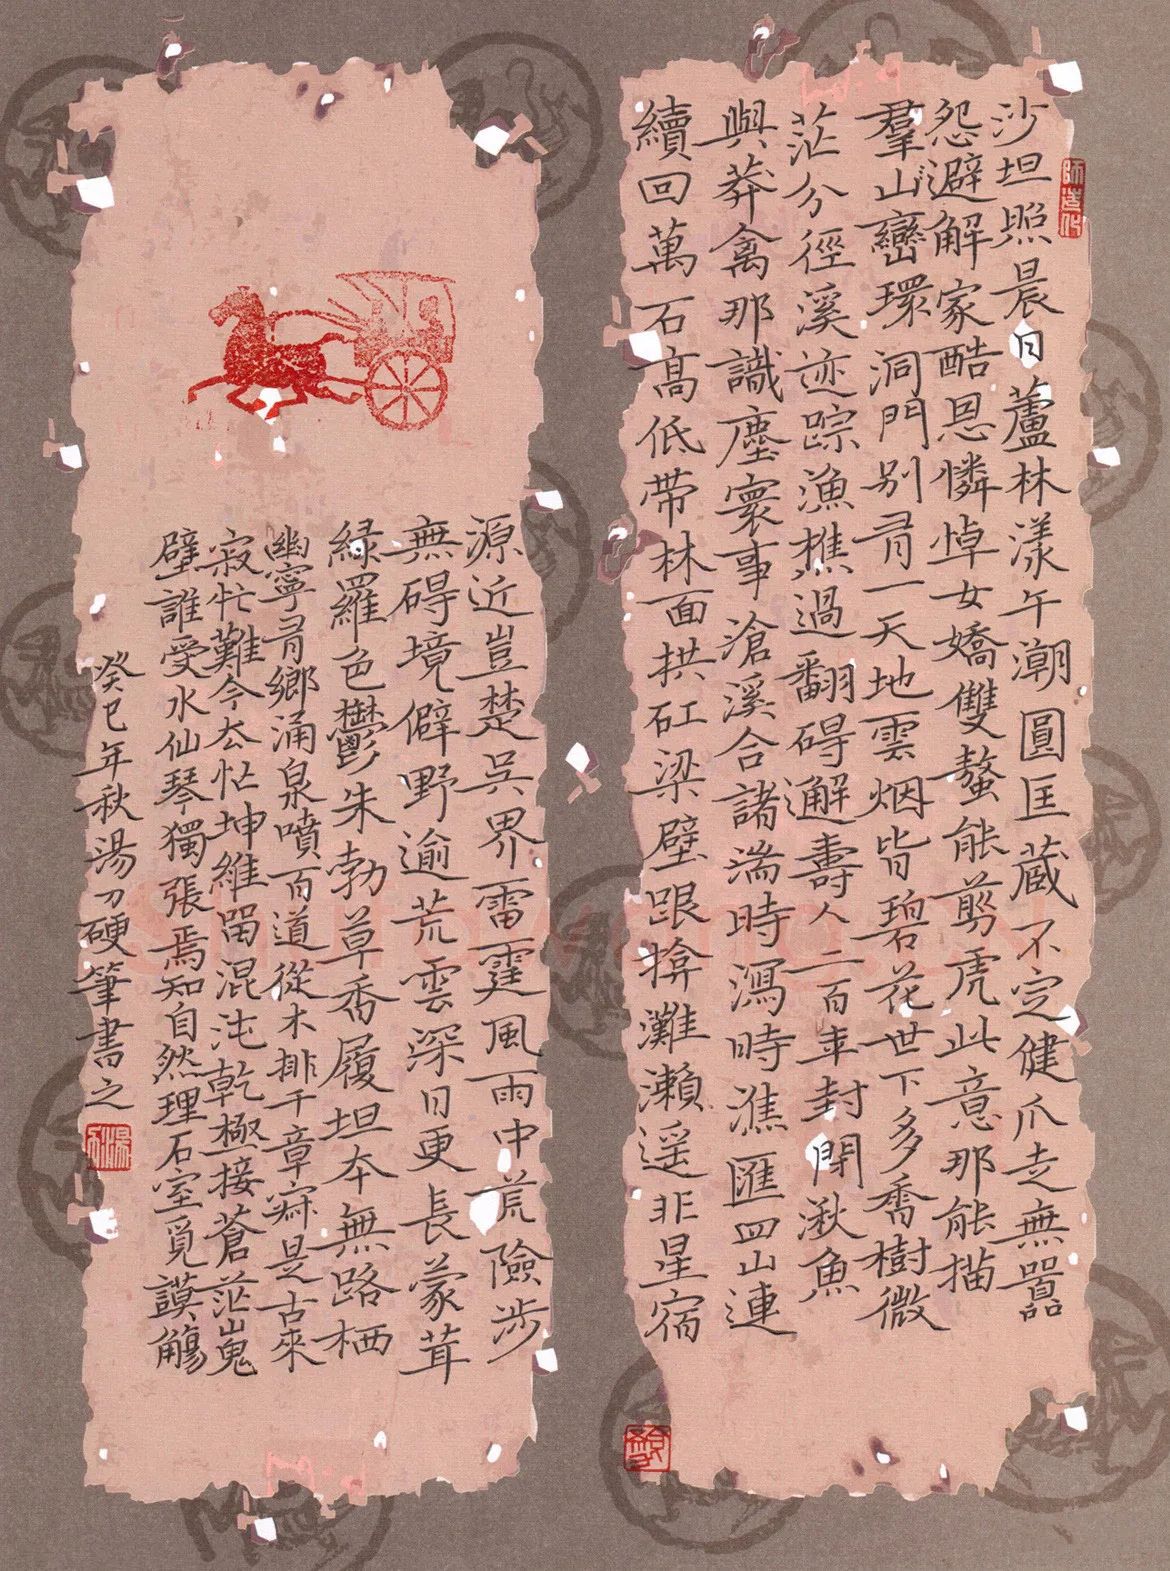 沙坦照晨日蘆林漾午潮圓匡蔵不定健爪走無嚣
怨避解家酷恩憐悼女嬌雙螯能剪虎此意那能描
羣山巒環洞門别有一天地雲烟皆碧花世下多喬樹微
茫分徑溪迹踪漁樵過翻碍邂壽人二百年封閉湫魚
與莽禽那識塵寰事滄溪合諸湍時瀉時潐匯四山連
續回萬石高低带林面拱矼梁壁跟擠灘瀨遥非星宿
源近豈楚吳界雷霆風雨中荒險涉
無碍境僻野逾荒雲深日更長蒙茸
緑羅色鬱朱勃草香履坦本無路栖
幽寧有鄉涌泉噴百道從木排千章寂是古來
寂忙難今太忙坤維留混沌乾極接蒼茫嵬
壁誰受水仙琴獨張焉知自然理石室覓謨觴
癸巳年秋湯刀硬筆書之
師造化